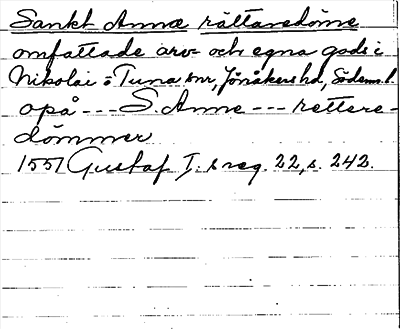 Sankt Annæ rättaredöme
omfattade arv- och egna gods i
Nikolai o Tuna snr, Jönåkers hd, Södeml.
opå --- S. Anne --- rettere-
dömmer
1551 Gustaf I:s reg. 22, s. 242.